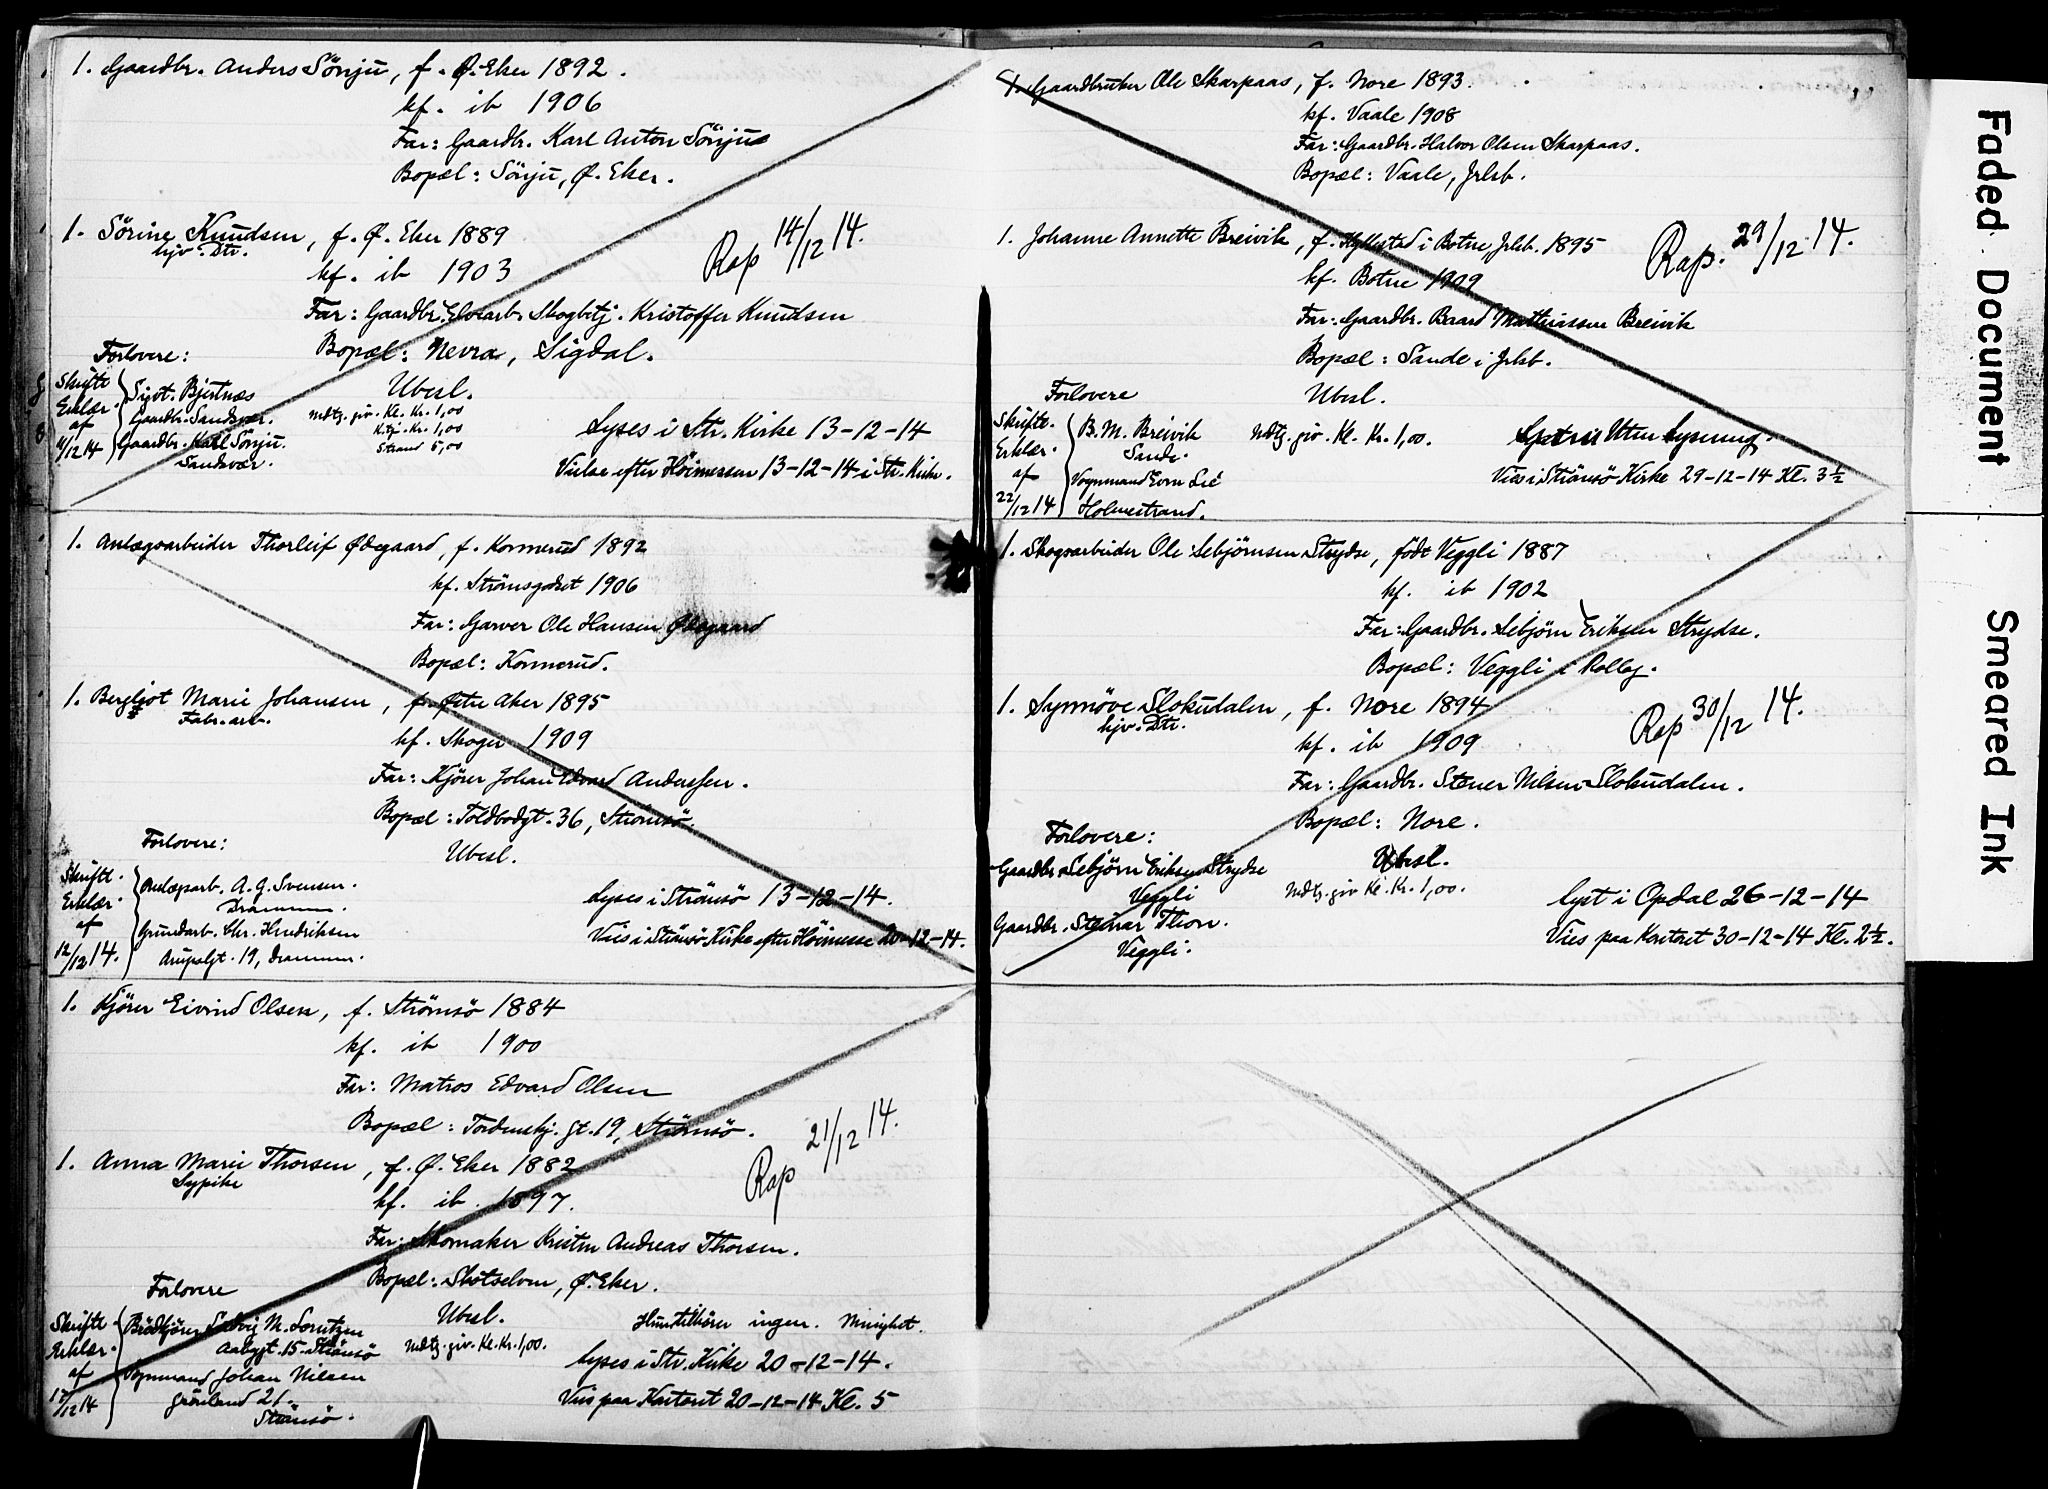 1. Gaardbr. Anders Sönju, f. Ø. Eker 1892.
kf. ib 1906
Far: Gaardbr. Karl Anton Sönju
Bopæl: Sönju, Ø. Eker.
1. Sörine Knudsen, f. Ø. Eker 1889
hjv. Dtr.
kf. ib 1903
Rap 14/12 14.
Far: Gaardbr. Skogbtj. Kristoffer Knudsen
Bopæl: Nevra, Sigdal.
Forlovere:
Skriftl. Erklær. af 11/12 14
Sigvt. Bjertnæs
Gaardbr. Sandsvær.
Gaardbr. Karl Sönju.
Sandsvær.
Ubesl.
Mdtg. giv. Kl. Kr. 1,00
Ktj. Kr. 1,00
Strand 5,00
Lyses i Str. Kirke 13-12-14
Vielse efter Höimessen 13-12-14 i Str. Kirke.
1. Anlægsarbeider Thorleif Ødegaard, f. Konnerud 1892
kf. Strömsgodset 1906
Far: Garver Ole Hansen Ødegaard
Bopæl: Konnerud.
1. Bergljot Marie Johansen, f. Østre Aker 1895
Fabr. arb.
kf. Skoger 1909
Far: Kjörer Johan Edvard Anderssen.
Bopæl: Toldbodgt. 36, Strömsö.
Forlovere:
Ubesl.
Skriftl. Erklær. af 12/12 14.
Anlægsarb. A. G. Svensen.
Drammen.
Grundarb. Chr. Hendriksen
19, Drammen.
Lyses i Strömsö 13-12-14.
Vies i Strömsö Kirke efter Höimesse 20-12-14.
1. Kjörer Eivind Olsen, f. Strömsö 1884
kf. ib 1900
Far: Matros Edvard Olsen
Bopæl: Tordenskj. gt. 19, Strömsö.
1. Anna Marie Thorsen, f. Ø. Eker 1882
Sypike
kf. ib. 1897.
Rap 21/12 14.
Far: Skomaker Kristen Andreas Thorsen.
Bopæl: Skotselven, Ø. Eker.
Forlovere
Ubesl.
Skriftl. Erklær. af 17/12 14
Brödkjörer Ludvig M. Lorntzen
Aabygt. 15 Strömsö
Vognmand Johan Nilsen
Grönland 21.
Strömsö.
Mdtg. giv. Kl. Kr. 1,00.
Hun tilhörer ingen Menighet.
Lyses i Str. Kirke 20-12-14.
Vies paa Kontoret 20-12-14 Kl. 5
1. Gaardbruker Ole Skarpaas, f. Nore 1893.
kf. Vaale 1908
Far: Gaardbr. Halvor Olsen Skarpaas.
Bopæl: Vaale, Jrlsb.
1. Johanne Annette Breivik, f. Hyllestad i Botne, Jrlsb. 1895
kf. Botne 1909
Rap. 29/12 14.
Far: Gaardbr. Baard Mathiassen Breivik
Bopæl: Sande i Jrlsb.
Forlovere
Ubesl.
Skriftl. Erklær. af 22/12 14
B. M. Breivik
Sande.
Vognmand Even Lie
Holmestrand.
Mdtg. giv. Kl. Kr. 1,00.
Uten Lysning.
Vies i Strömsö Kirke 29-12-14 Kl. 3½
1. Skogsarbeider Ole Sebjörnsen Strydse, født Veggli 1887
kf. ib 1902
Far: Gaardbr. Sebjörn Eriksen Strydse.
Bopæl: Veggli i Rollag.
1. Synnöve Slokudalen, f. Nore 1894
hjv. Dtr.
kf. ib 1909
Rap 30/12 14.
Far: Gaardbr. Stener Nilsen Slokudalen.
Bopæl: Nore.
Forlovere:
Gaardbr. Sebjörn Eriksen Strydse
Veggli
Gaardbr. Steinar Thon.
Veggli.
Ubesl.
Mdtg. giv Kl. Kr. 1,00.
Lyst i Opdal 26-12-14
Vies paa Kontoret 30-12-14 Kl. 2½.
Faded Document
Smeared Ink